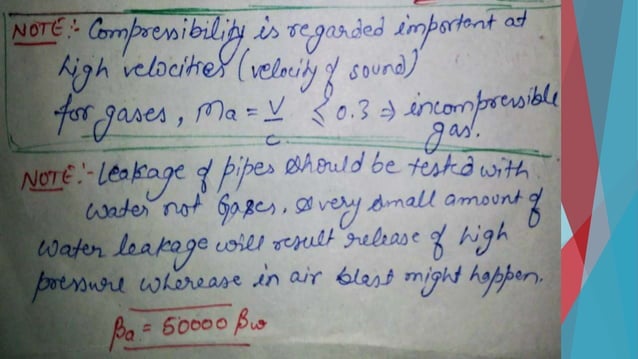 NOTE:- Compressibility is regarded important at
high velocities (velocity of sound)
for gases, Ma = V/c ≤ 0.3 ⇒ incompressible
gas.
NOTE:- Leakage of pipes should be tested with
water not Gases. A very small amount of
water leakage will result release of high
pressure wherease in air blast might happen.
βa = 50000 βw